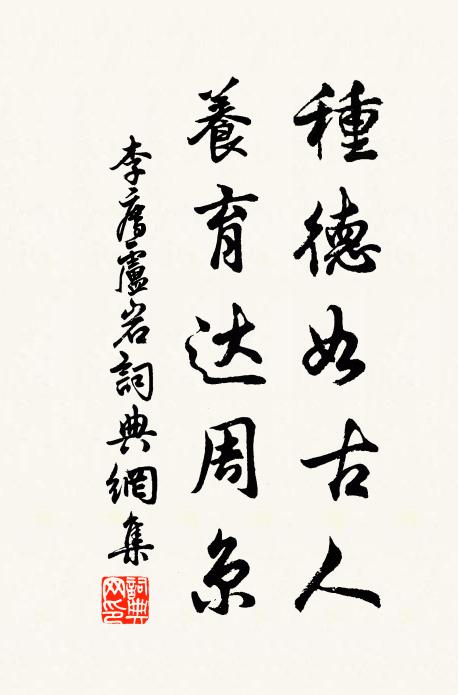 種德如古人
養育达周京
李廌盧岩詞典網集
詞典
网印